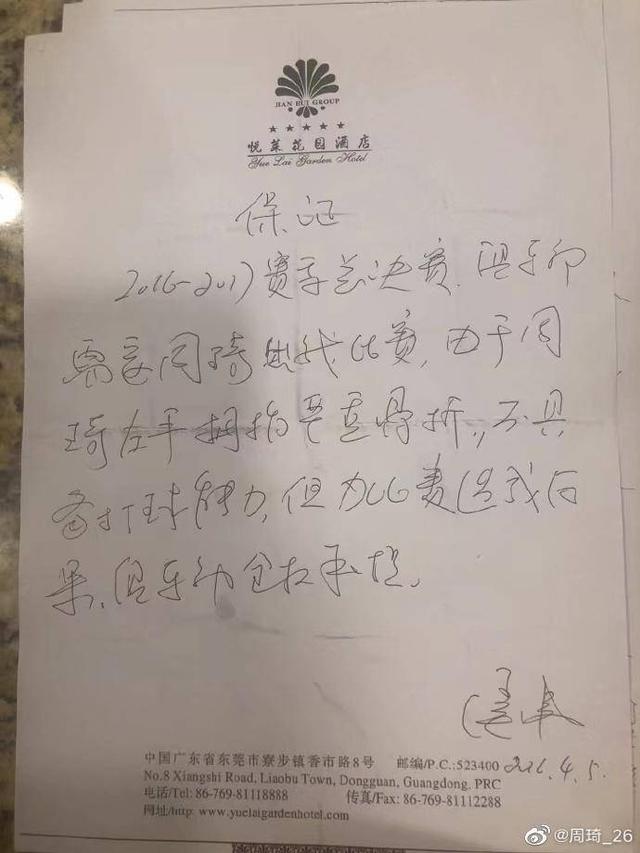 JIAN HUI GROUP
悦莱花园酒店
Yue Lai Garden Hotel
保证
2016-2017赛季总决赛,俱乐部
需要周琦出战比赛,由于周
琦左手拇指严重骨折,不具
备打球能力,但为比赛造成后
果,俱乐部全权承担。
2016.4.5.
中国广东省东莞市寮步镇香市路8号 邮编/P.C.:523400
No.8 Xiangshi Road, Liaobu Town, Dongguan, Guangdong. PRC
电话/Tel: 86-769-81118888 传真/Fax: 86-769-81112288
网址/http: www.yuelaigardenhotel.com
@周琦_26